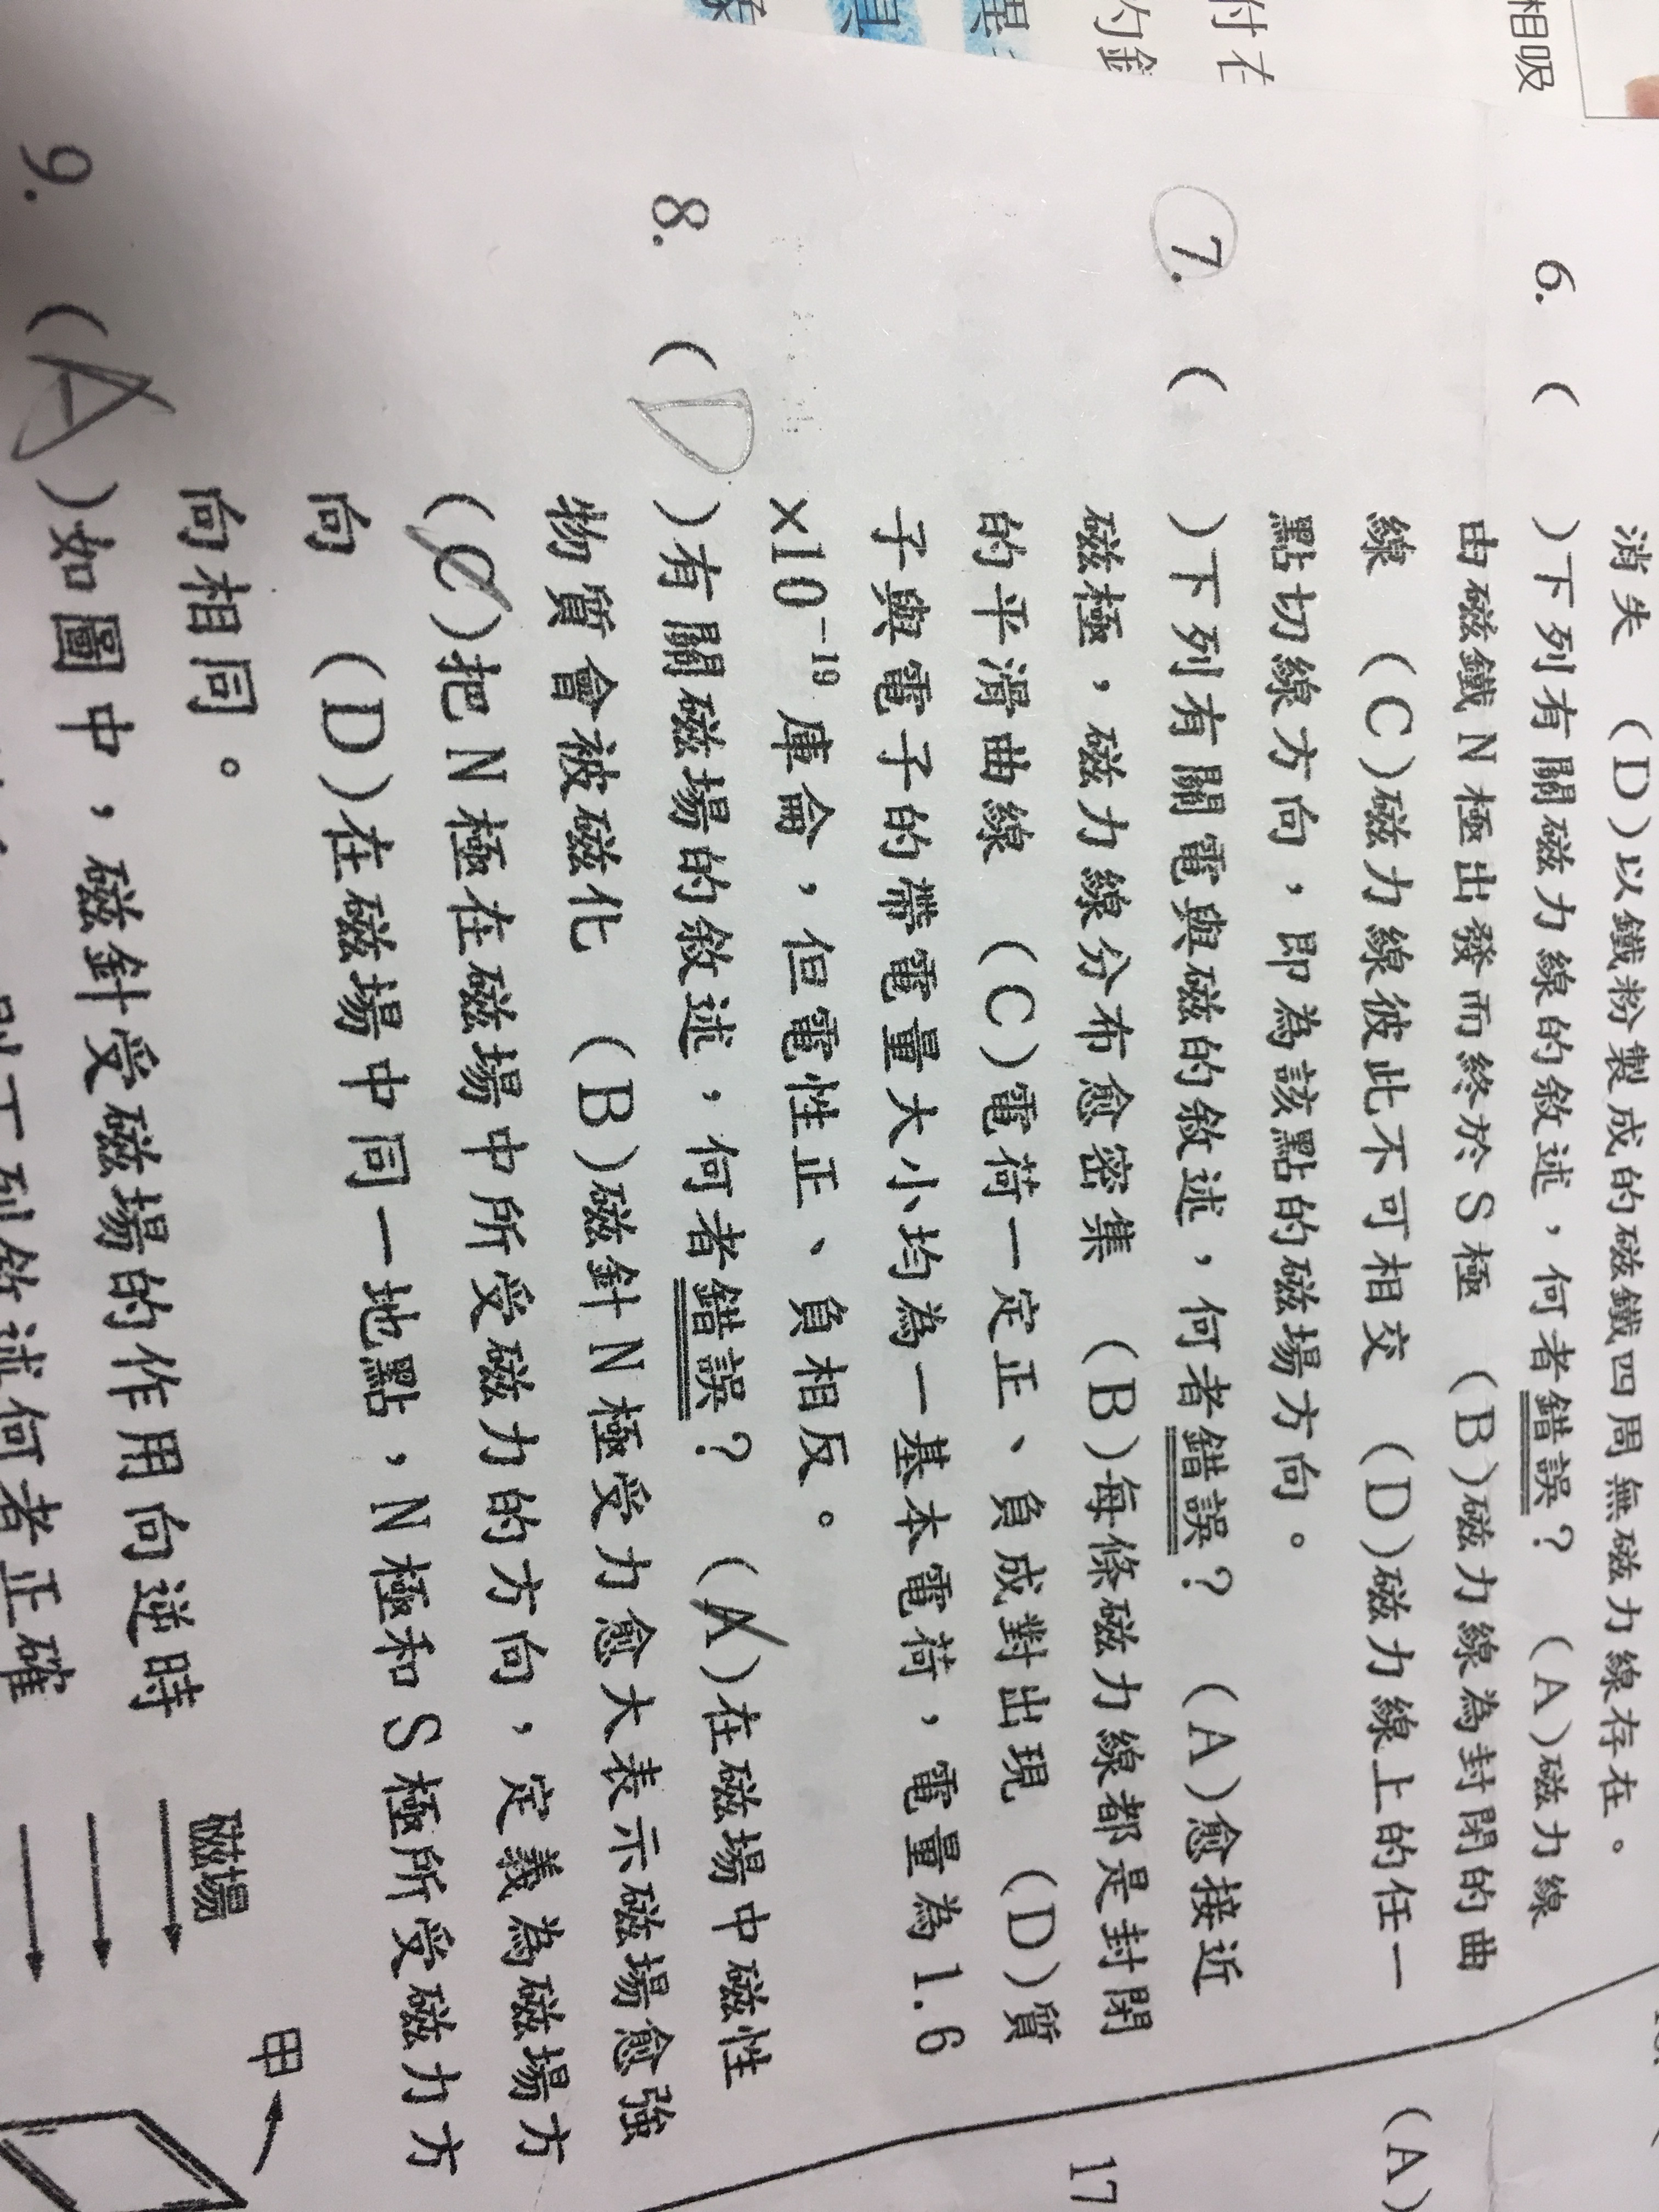 相吸
付在
消失 (D)以鐵粉製成的磁鐵四周無磁力線存在。
6. ( )下列有關磁力線的敘述，何者錯誤？ (A)磁力線
由磁鐵N極出發而終於S極 (B)磁力線為封閉的曲
線 (C)磁力線彼此不可相交 (D)磁力線上的任一
點切線方向，即為該點的磁場方向。
7. ( )下列有關電與磁的敘述，何者錯誤？ (A)愈接近
磁極，磁力線分布愈密集 (B)每條磁力線都是封閉
的平滑曲線 (C)電荷一定正、負成對出現 (D)質
子與電子的帶電量大小均為一基本電荷，電量為1.6
×10⁻¹⁹庫侖，但電性正、負相反。
8. (D)有關磁場的敘述，何者錯誤？ (A)在磁場中磁性
物質會被磁化 (B)磁針N極受力愈大表示磁場愈強
(C)把N極在磁場中所受磁力的方向，定義為磁場方
向 (D)在磁場中同一地點，N極和S極所受磁力方
向相同。
9. (A)如圖中，磁針受磁場的作用向逆時
則下列敘述何者正確
磁場
甲
(A)
17